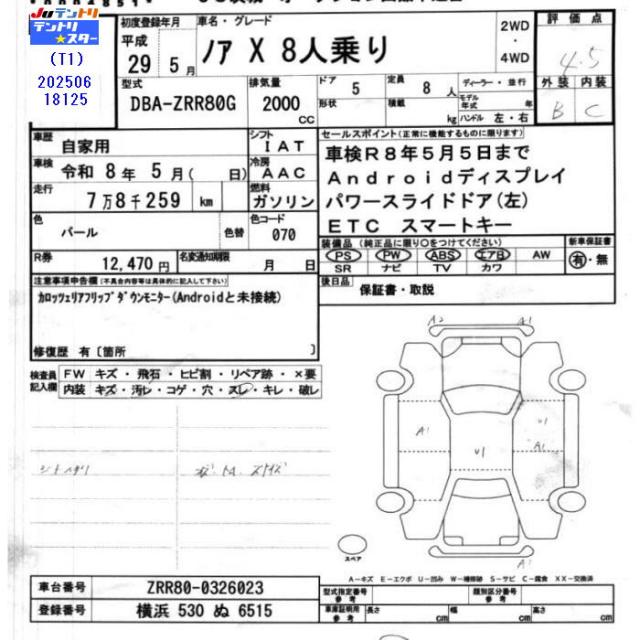 JUテントリ
テントリ★スター
(T1)
202506
18125
初度登録年月
平成 29年 5月
車名・グレード
ノア X 8人乗り
2WD
・
4WD
評価点
4.5
外装 内装
B C
型式
DBA-ZRR80G
排気量
2000 CC
ドア 5
形状
定員 8人
積載 kg
ディーラー・並行
モデル年式 年
ハンドル 左・右
車歴 自家用
シフト IAT
車検 令和 8年 5月( 日)
冷房 AAC
走行 7万8千259 km
燃料 ガソリン
色 パール 色替
色コード 070
R券 12,470円
名変通知期限 月 日
セールスポイント(正常に機能するものに限ります)
車検R8年5月5日まで
Androidディスプレイ
パワースライドドア(左)
ETC スマートキー
装備品(純正品に限り○をつけてください)
PS PW ABS エアB AW
SR ナビ TV カワ
新車保証書
有・無
後日品 保証書・取説
注意事項申告欄(不具合内容等は具体的に記入して下さい)
カロッツェリアフリップダウンモニター(Androidと未接続)
修復歴 有〔箇所 〕
検査員記入欄
FW キズ・飛石・ヒビ割・リペア跡・×要
内装 キズ・汚レ・コゲ・穴・スレ・キレ・破レ
A2 A1
A1 U1 U1 A1
A1
スペア
A-キズ E-エクボ U-凹み W-補修跡 S-サビ C-腐食 XX-交換済
車台番号 ZRR80-0326023
登録番号 横浜 530 ぬ 6515
型式指定番号 参考
類別区分番号 参考
車庫証明用参考 長さ cm 幅 cm 高さ cm